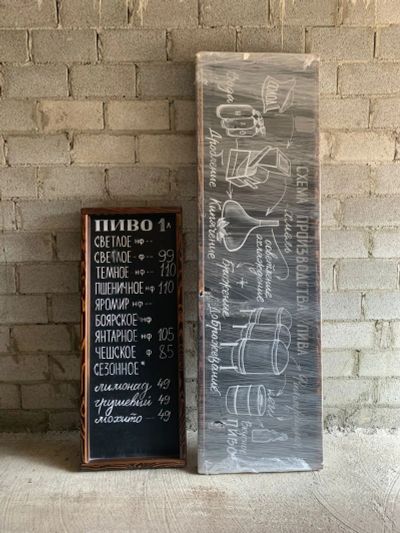 ПИВО 1л
СВЕТЛОЕ НФ --
СВЕТЛОЕ Ф 99
ТЕМНОЕ НФ 110
ПШЕНИЧНОЕ НФ 110
ЯРОМИР НФ --
БОЯРСКОЕ НФ
ЯНТАРНОЕ НФ 105
ЧЕШСКОЕ Ф 85
СЕЗОННОЕ*
лимонад 49
грушевый 49
мохито -- 49
СХЕМА ПРОИЗВОДСТВА ПИВА
Вода
солод
Дробление
Кипячение
хмель
охлаждение
+
Брожение
Дображивание
кеги
ПИВО